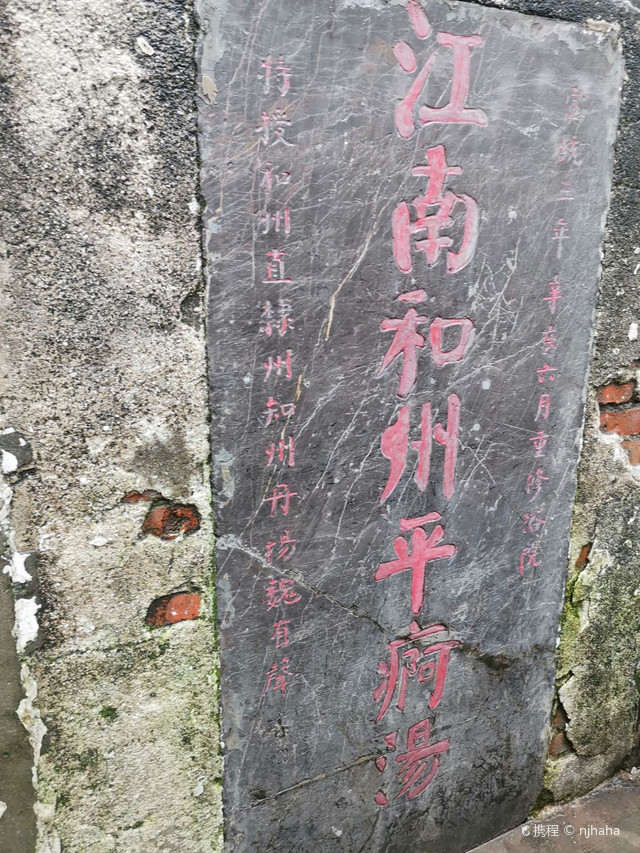 宣統三年辛亥六月重修浴院
江南和州平疴湯
特授和州直隸州知州丹揚魏有聲
携程 © njhaha